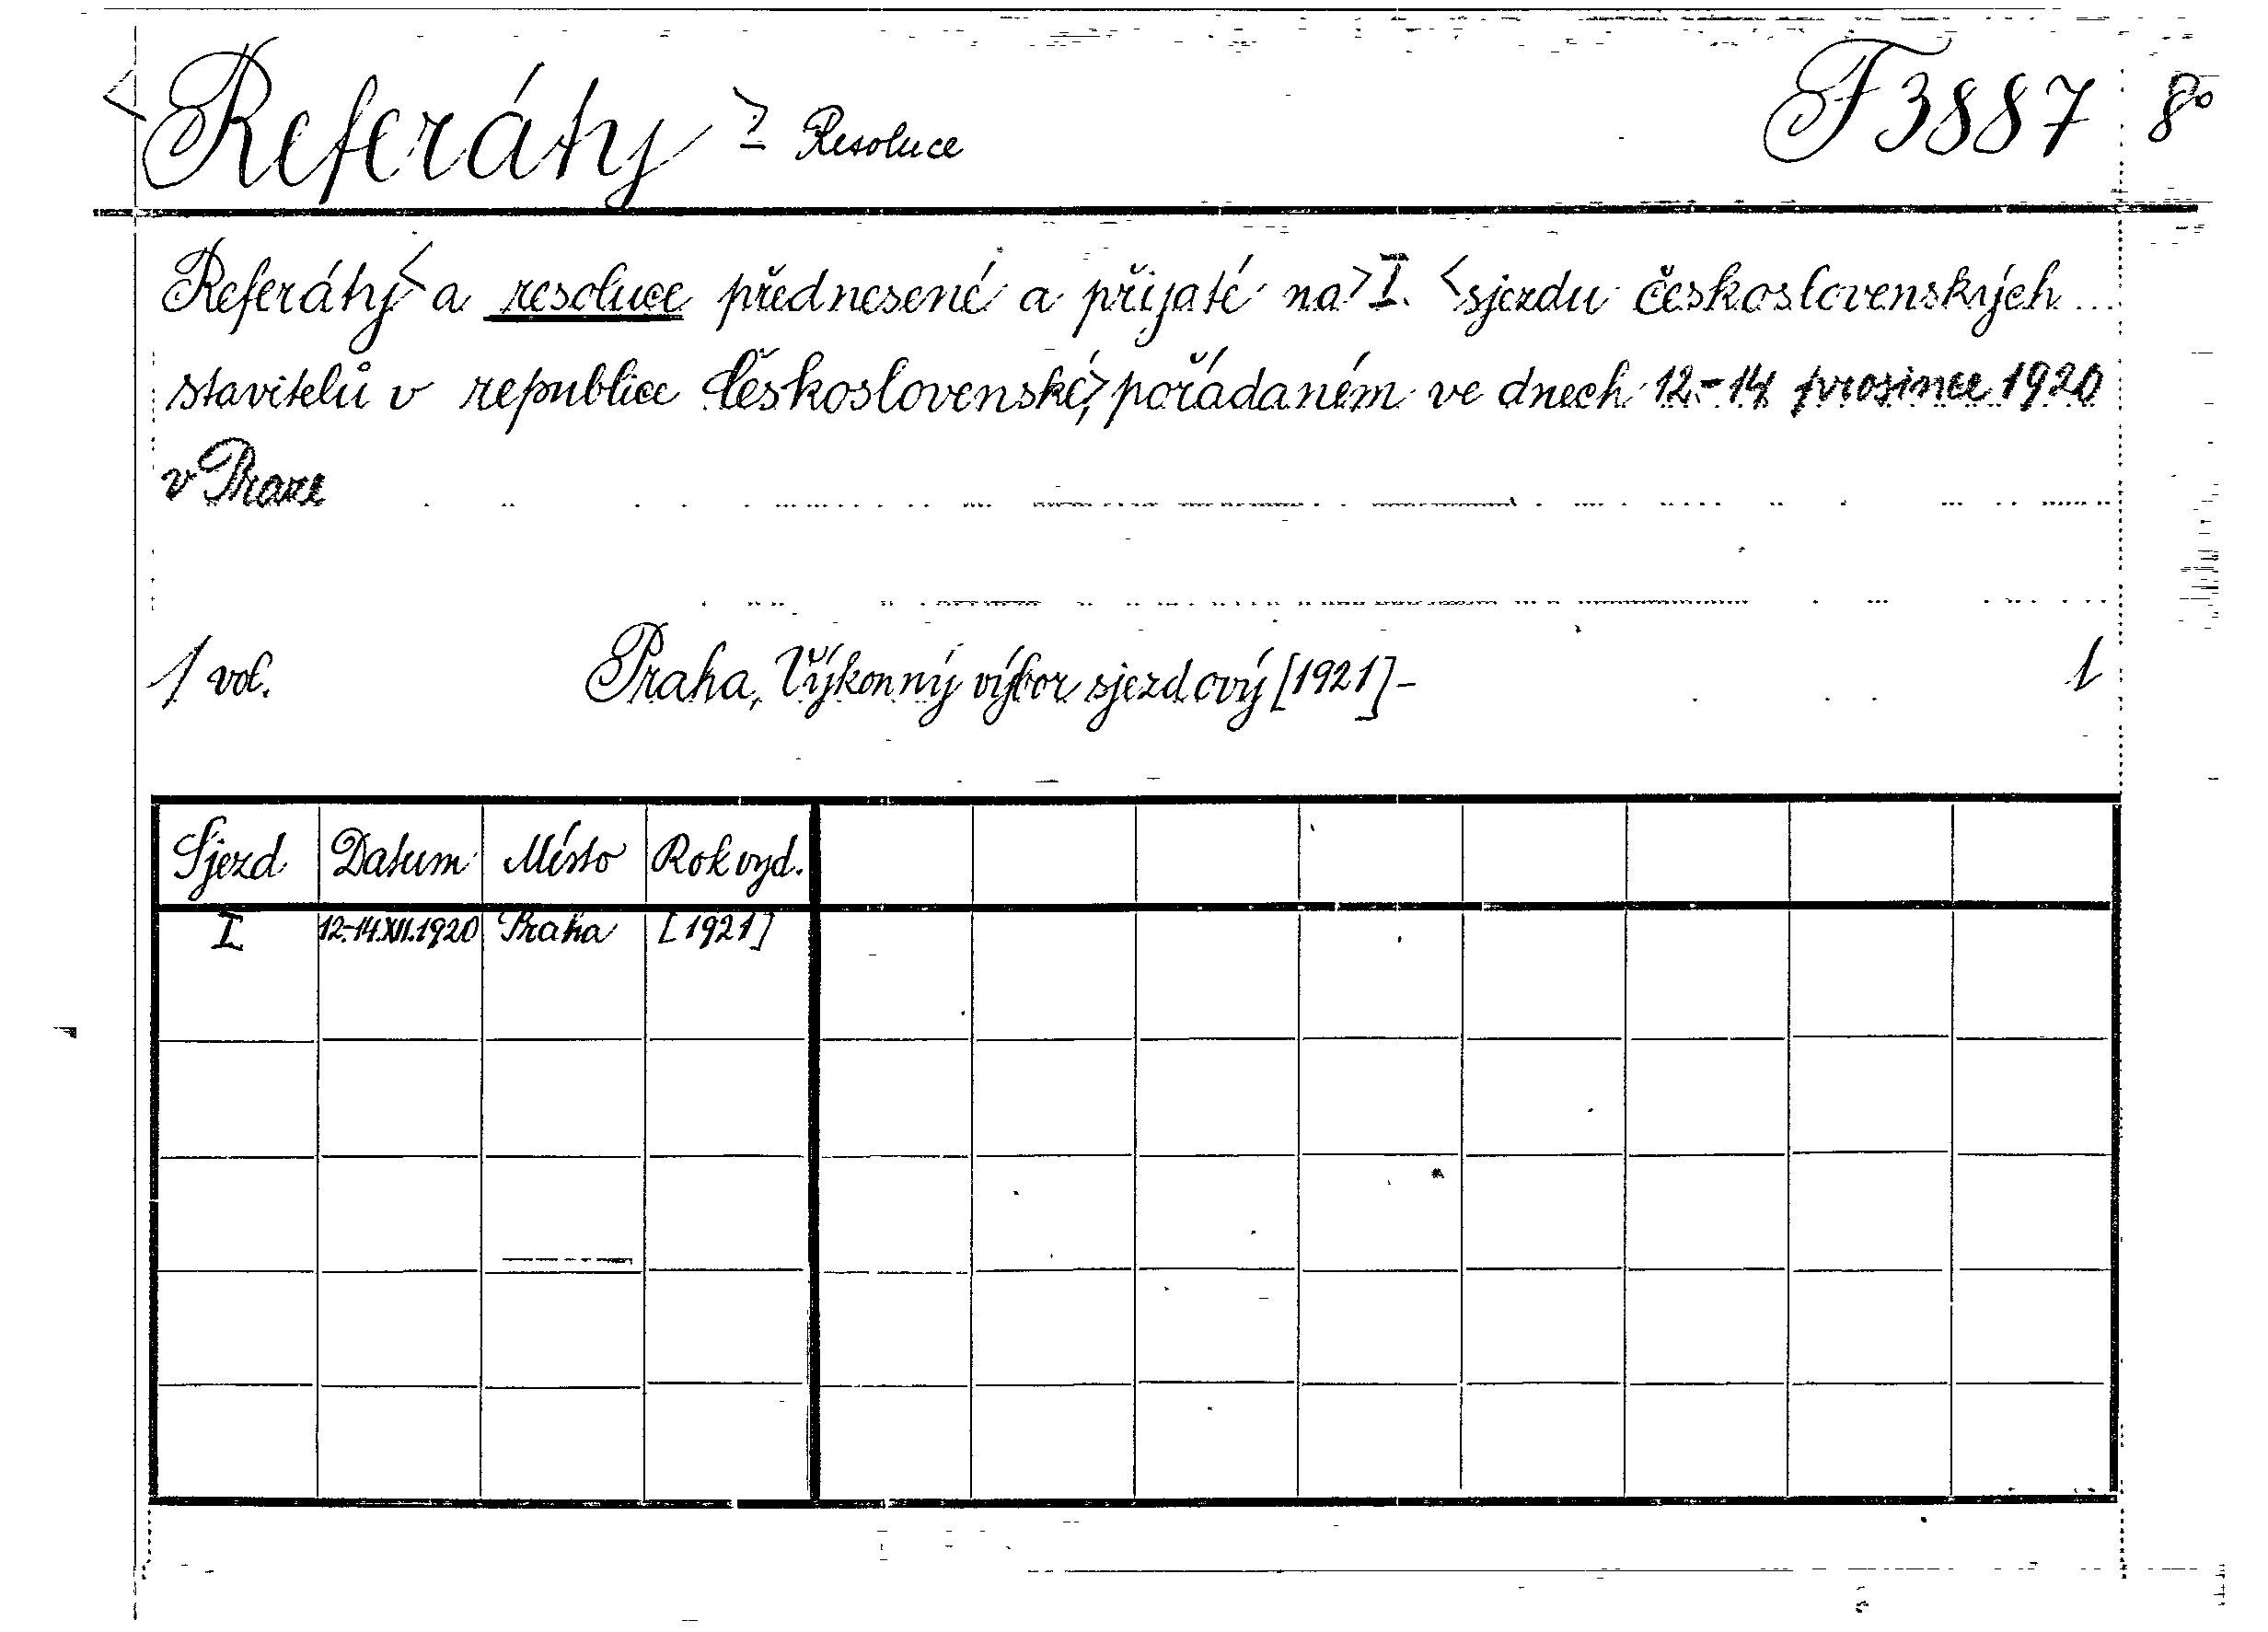 <Referáty> Resoluce F 3887 8°
Referáty< a resoluce přednesené a přijaté na> I. <sjezdu československých
stavitelů v republice Československé,> pořádaném ve dnech 12.-14 prosince 1920
v Praze
1 vol. Praha, Výkonný výbor sjezdový [1921]- 1
Sjezd Datum Místo Rok vyd.
I 12.-14.XII.1920 Praha [1921]